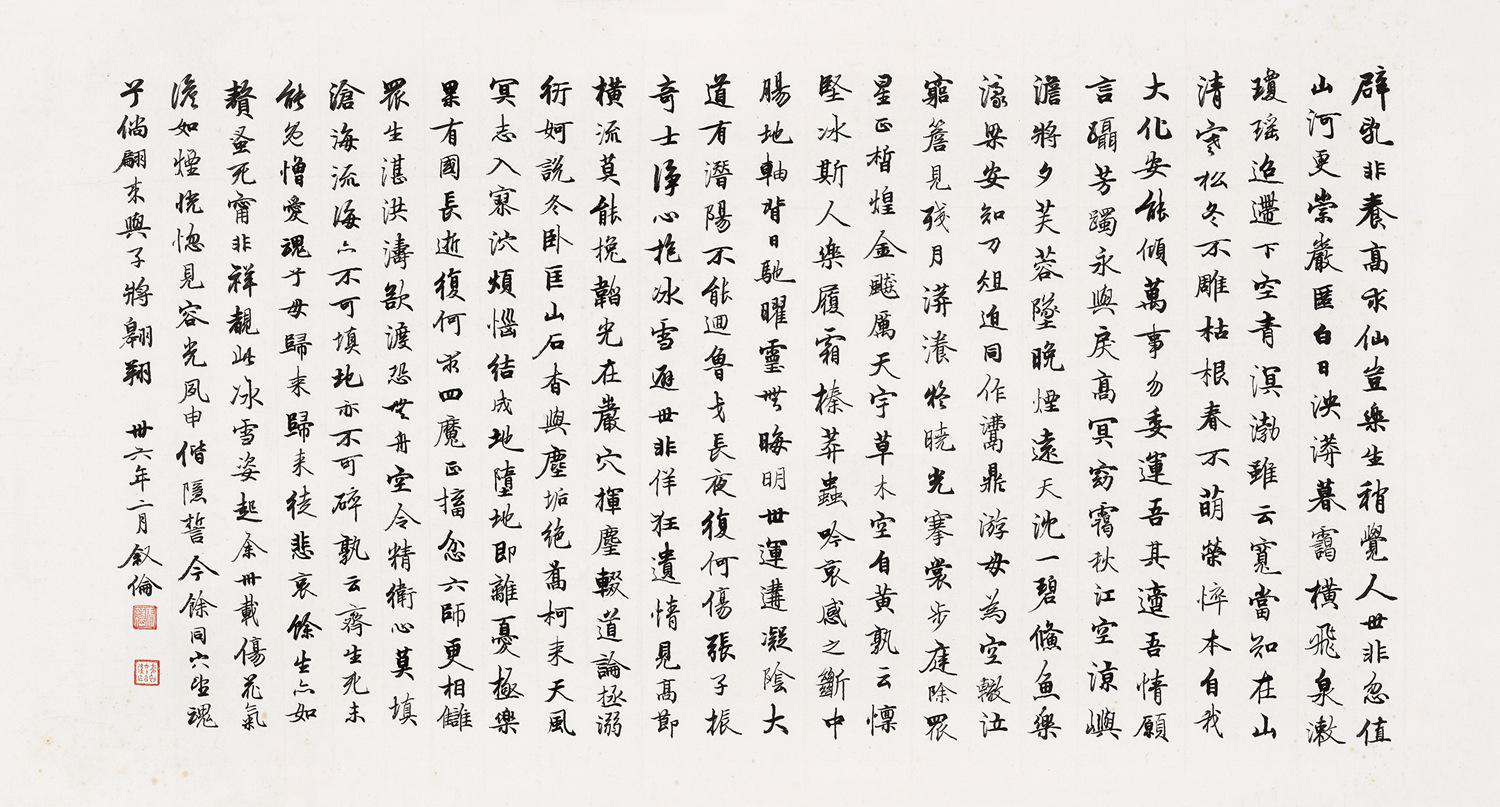 辟乳非養高求仙豈樂生稍覺人世非忽值
山河更崇巖匿白日泱漭暮靄橫飛泉漱
瓊瑤迢遰下空青溟渤雖云寬當知在山
清寒松冬不雕枯根春不萌榮悴本自我
大化安能傾萬事勿委運吾其適吾情願
言躡芳躅永與戾高冥窈靄秋江空涼嶼
澹將夕芙蓉墜晚煙遠天沈一碧儵魚樂
濠梁安知刀俎迫同作鬻鼎游毋為空轍泣
窮簷見殘月漭瀁將曉光搴裳步庭除眾
星正晢煌金飈厲天宇草木空自黃孰云懍
堅冰斯人樂履霜榛莽蟲吟哀感之斷中
腸地軸背日馳曜靈無晦明世運遘凝陰大
道有潛陽不能迴魯戈長夜復何傷張子振
奇士淨心抱冰雪避世非佯狂遺情見高節
橫流莫能挽韜光在巖穴揮麈輟道論極溺
衍妸說冬卧匡山石杳與塵垢絕蒿柯未天風
冥志入寥泬煩惱結成地墮地即離憂極樂
果有國長逝復何求四魔正擂忽六師更相讎
眾生湛洪濤欲渡恐無舟空令精衛心莫填
滄海流海亦不可填地亦不可碎孰云齊生死未
能忘憎愛魂兮毋歸來歸來徒悲哀餘生亦如
贅蚤死甯非祥覯此冰雪姿起余卅載傷花氣
澹如煙恍惚見容光夙申偕隱誓今餘同穴望魂
兮倘翩來與子將翱翔 卅六年二月 叙倫